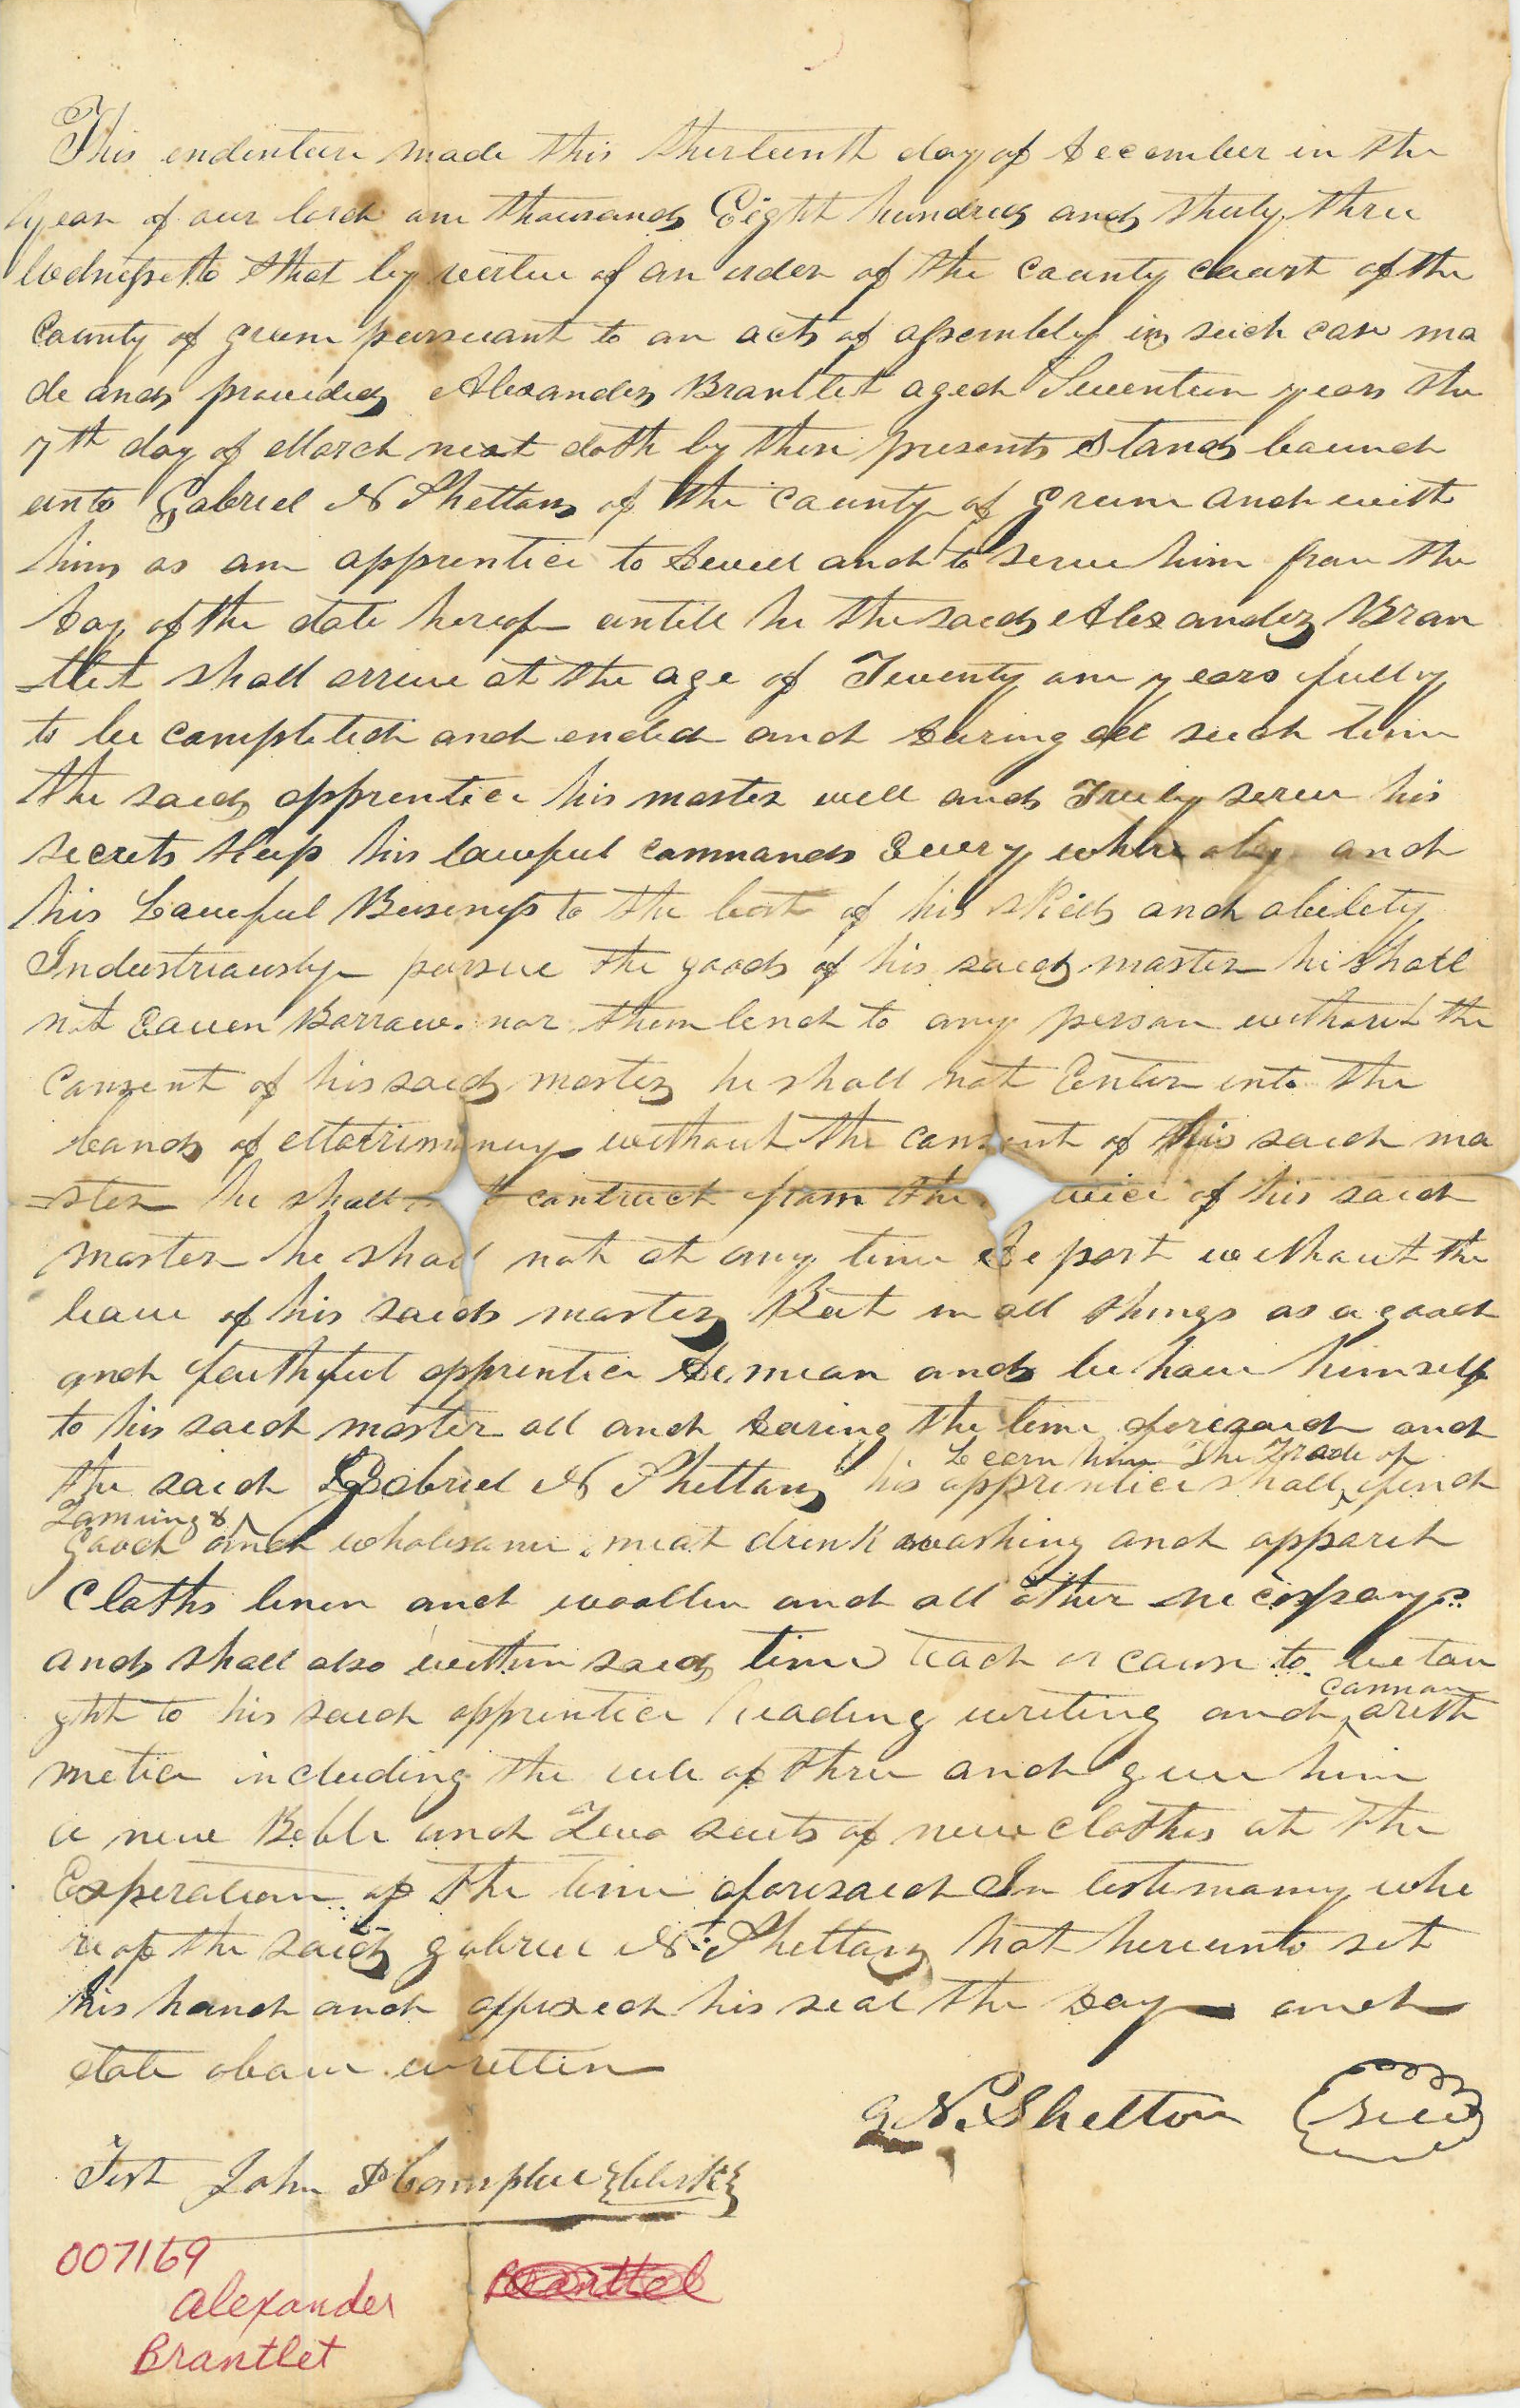 This endenture made this thirteenth day of December in the
year of our lord one thousand Eight hundred and thirty three
Wednesseto that by vertue of an order of the county court of the
County of green persuant to an acts of assembly in such case ma
de and provided Alexander Brantlet aged Seventeen years the
7th day of March next doth by these presents Stand bound
unto Gabriel N Shelton of the county of Green and with
him as an apprentice to dwell and to serve him from the
day of the date hereof untill he the said Alexander Bran
=tlet shall arrive at the age of Twenty one years fully
to be completed and ended and during all such time
the said apprentice his master well and Truly serve his
secrets keep his lawful commands Every where obey and
his Lawful Business to the best of his skill and ability
Industriously pursue the goods of his said master he shall
not Borrow nor them lend to any person without the
Consent of his said master he shall not Enter into the
bands of Matrimony without the consent of his said ma
=ster he shall contract from the of his said
master he shall not at any time depart without the
leave of his said master But in all things as a good
and faithful apprentice demean and behave himself
to his said master all and during the time aforesaid and
Learn him The Trade of
the said Gabriel N Shelton his apprentice shall find
Tanning &
good and wholesome meat drink washing and apparel
Cloths linen and woollen and all other necessarys
and shall also within said time teach or cause to be tau
common
ght to his said apprentice Reading writing and arith
metic including the rule of three and give him
a new Bible and Two suits of new clothes at the
Experation of the time aforesaid In testimony whe
reof the said gabriel N. Shelton hat hereunto set
his hand and affixed his seal the day and
date above written
G. N. Shelton Seal
Test John D Campbell Clerk
007169
Alexander Brantlel
Brantlet